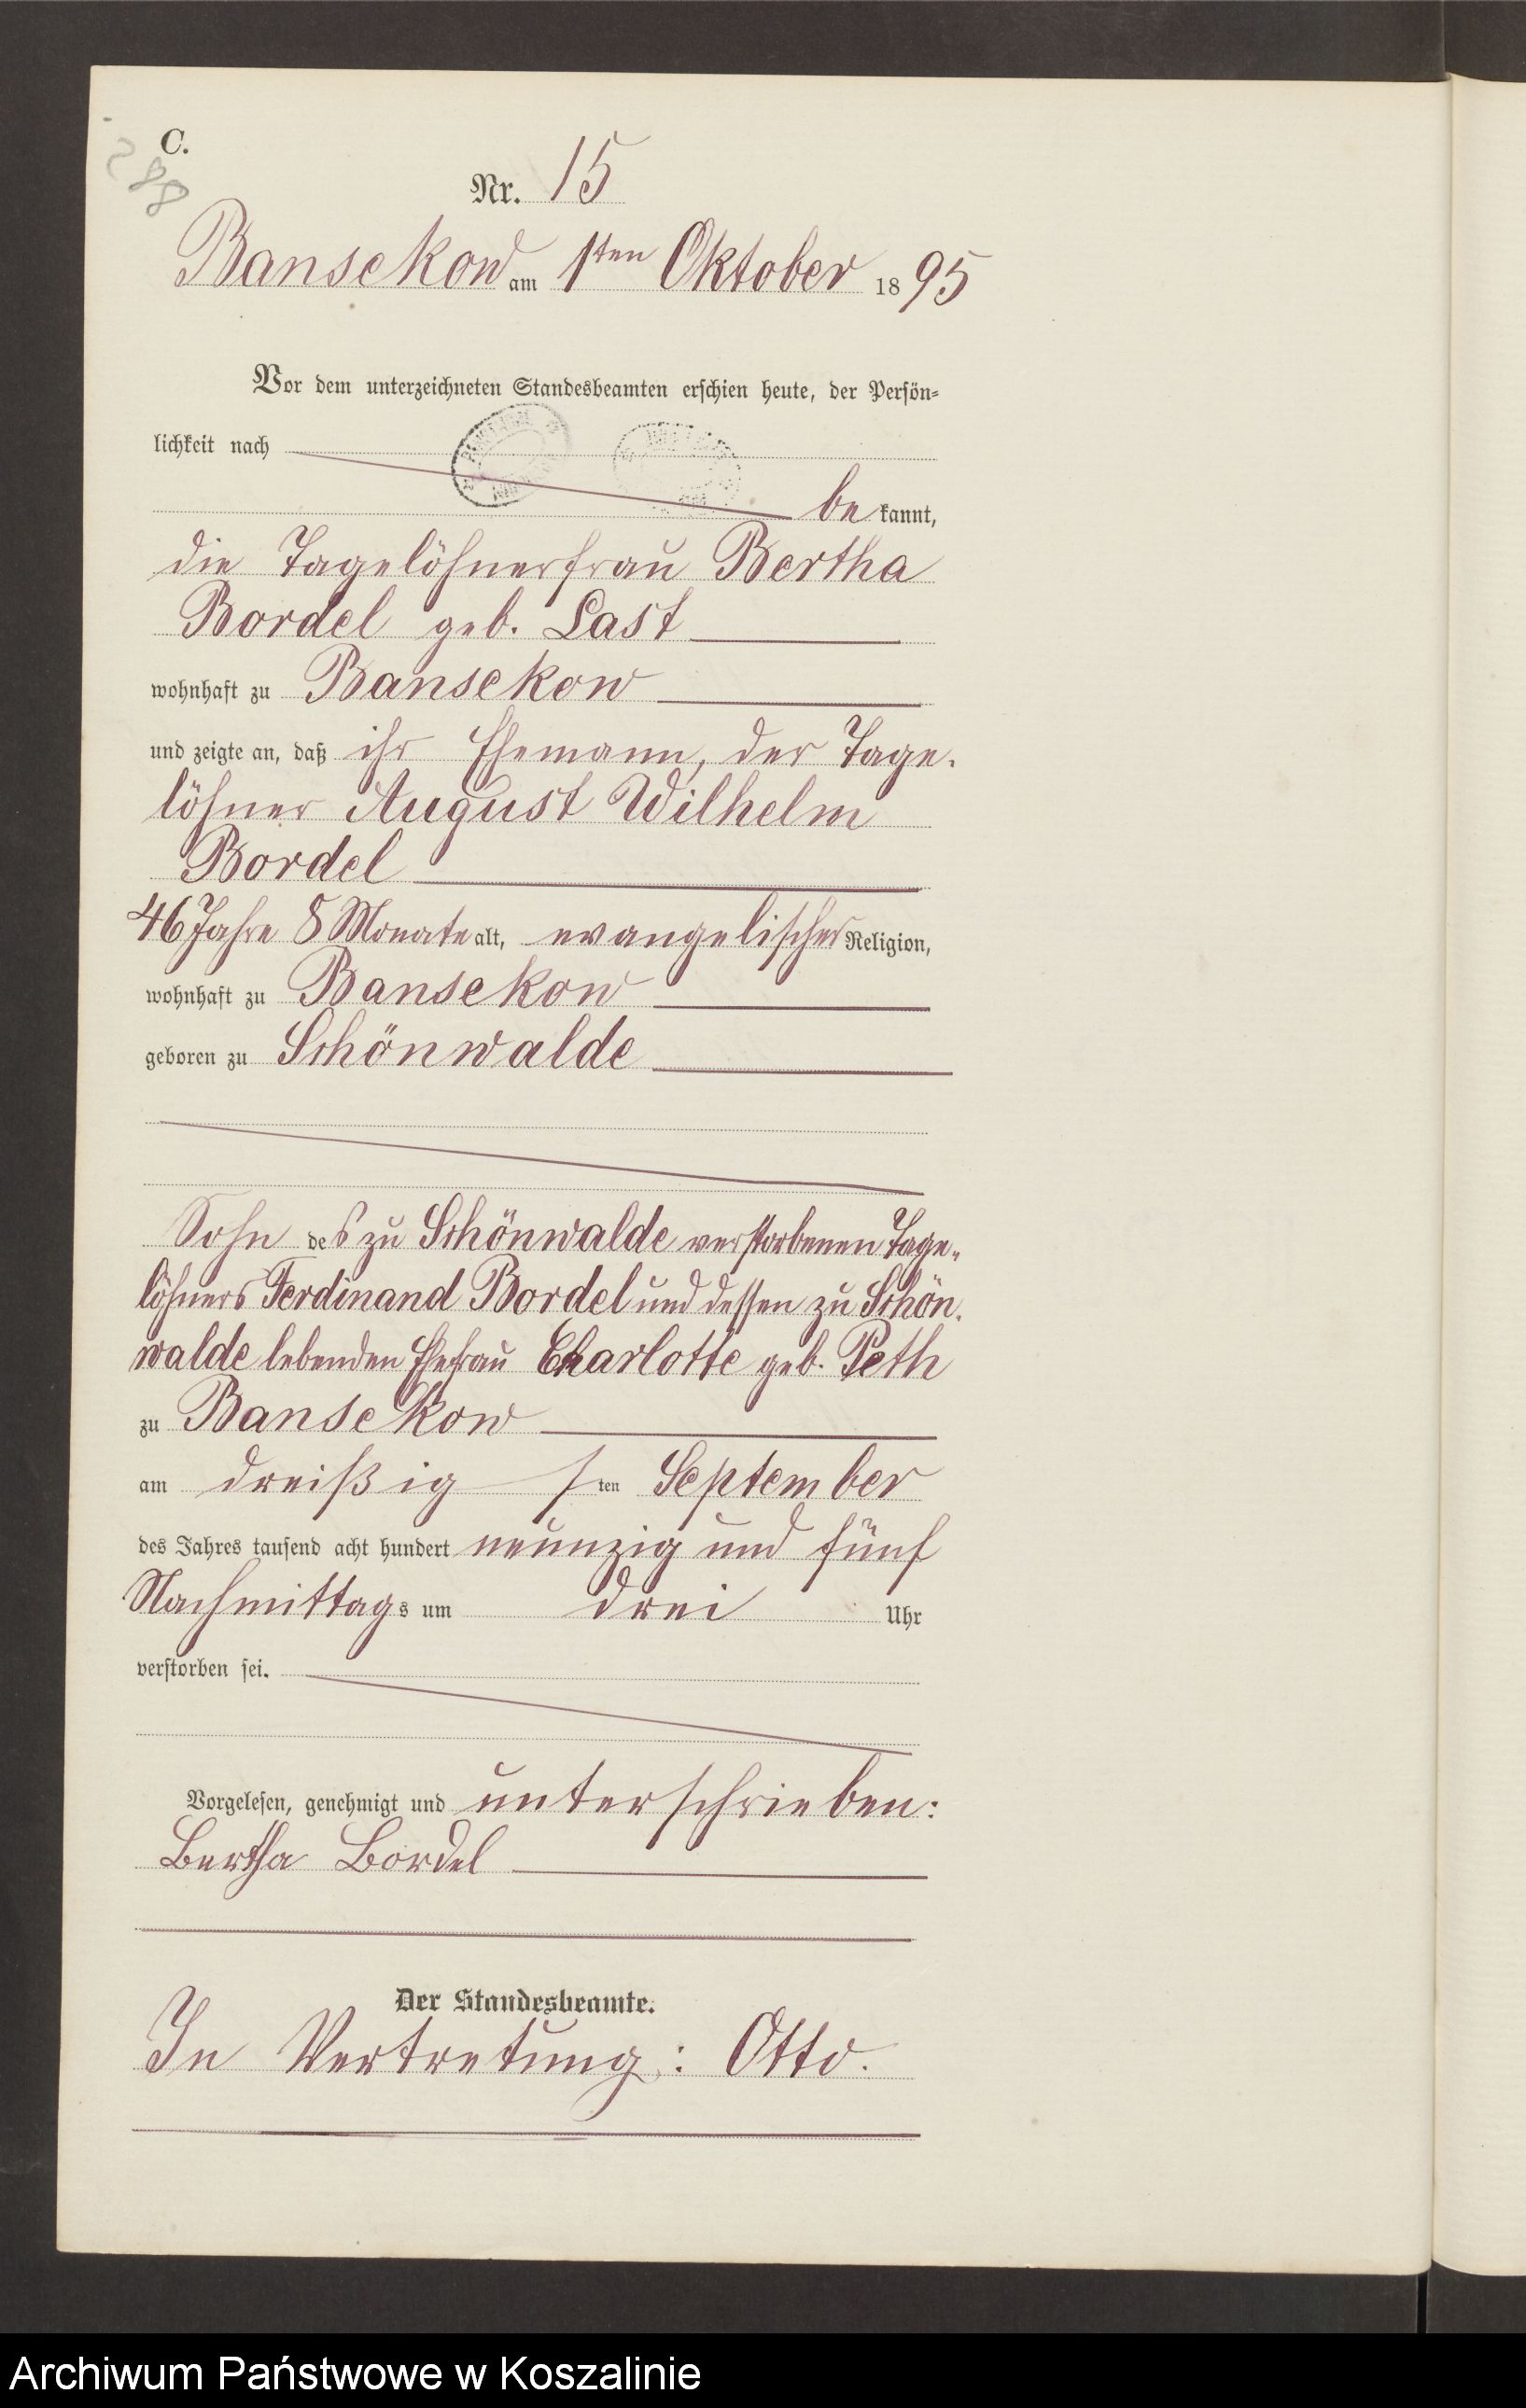 C.
288
Nr. 15
Bansekow am 1ten Oktober 1895
Vor dem unterzeichneten Standesbeamten erschien heute, der Persön-
lichkeit nach
be kannt,
die Tagelöhnerfrau Bertha
Bordel geb. Last
wohnhaft zu Bansekow
und zeigte an, daß ihr Ehemann, der Tage-
löhner August Wilhelm
Bordel
46 Jahre 8 Monate alt, evangelischer Religion,
wohnhaft zu Bansekow
geboren zu Schönwalde
Sohn des zu Schönwalde verstorbenen Tage-
löhners Ferdinand Bordel und dessen zu Schön-
walde lebenden Ehefrau Charlotte geb. Peth
zu Bansekow
am dreißig sten September
des Jahres tausend acht hundert neunzig und fünf
Nachmittags um drei Uhr
verstorben sei.
Vorgelesen, genehmigt und unterschrieben:
Bertha Bordel
Der Standesbeamte.
In Vertretung: Otto.
Archiwum Państwowe w Koszalinie